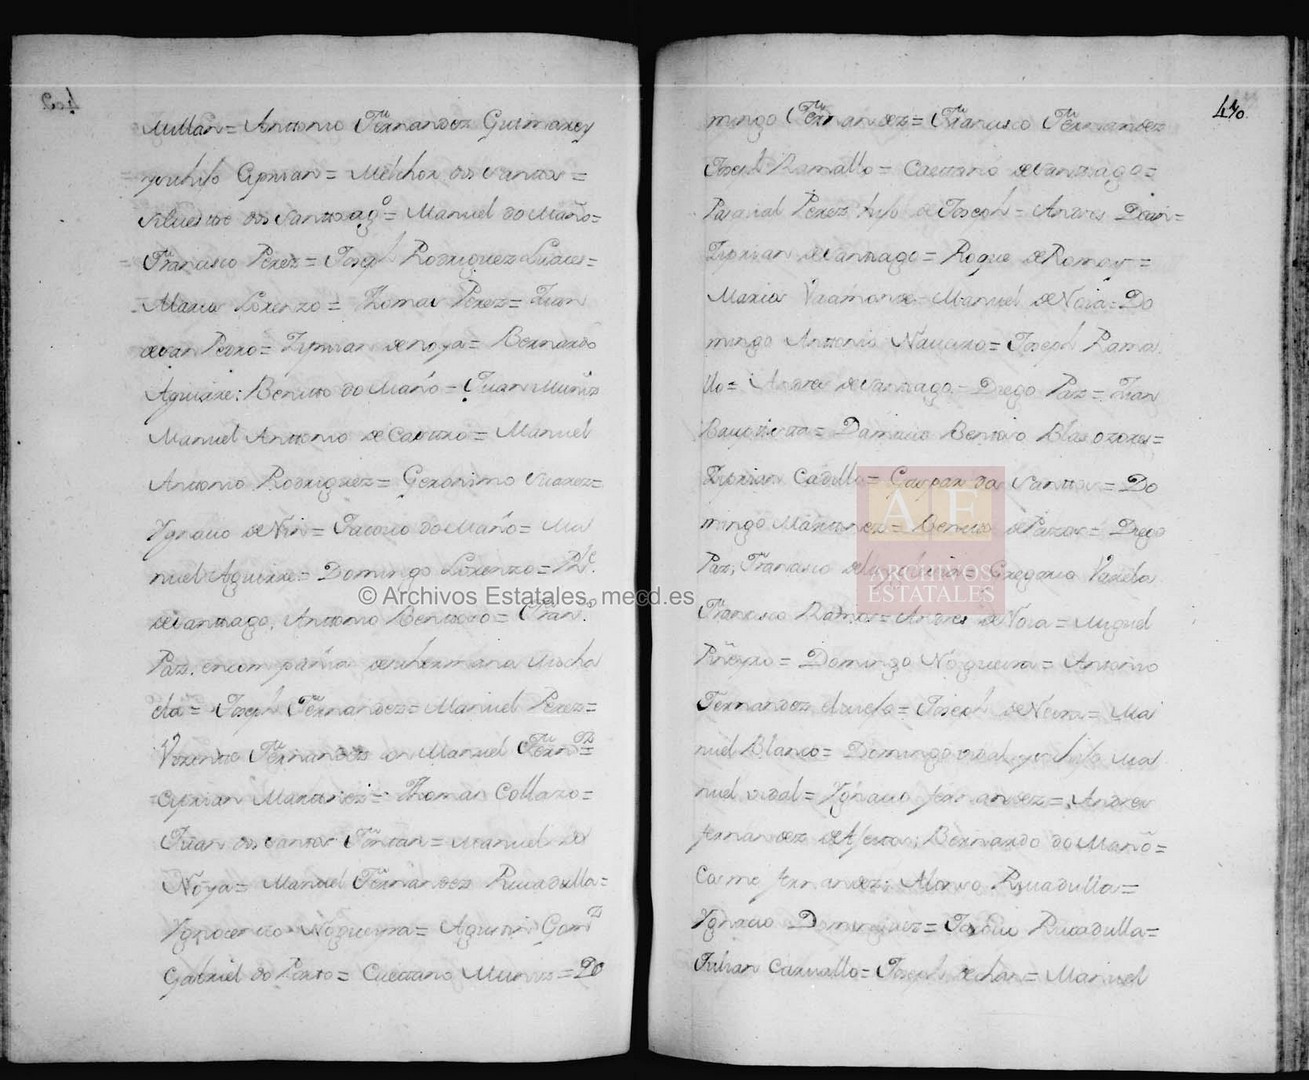 402
Millan= Antonio Fernandez Guimarey
y su hijo Ciprian= Melchor dos Santos=
Silvestre dos Santiagº= Manuel do Maño=
Francisco Perez= Joseph Rodriguez Suares=
Maria Lorenzo= Thomas Perez= Juan
de San Pedro= Ziprian de noya= Bernardo
Aguirre: Benitto do Maño= Juan Muñiz
Manuel Antonio de Casttro= Manuel
Antonio Rodriguez= Geronimo Suarez=
Ygnacio de Nin= Jacovo do Maño= Ma
nuel Aguirre= Domingo Lorenzo= Phe.
de Santiago, Antonio Benttoso= Franco.
Paz, en compañia de su hermana Mocha
cha= Joseph Fernandez= Manuel Perez=
Vizente Fernandez Manuel Fernz=
Cyprian Martinez= Thomas Collazo=
Juan dos Santos= Manuel de
Noya= Manuel Fernandez Ruvadulla=
Ygnocencio Nogueyra= Agustin Gonz
Gabriel do Porto= Caettano Muñiz= Do
470.
mingo Fernandez= Francisco Fernandez
Joseph Ramallo= Caettano de Santiago=
Pasqual Perez, hijo de Joseph= Andres
Ziprian de Santiago= Roque de Romay=
Maria Vaamonde= Manuel de Noia= Do
mingo Antonio Naveiro= Joseph Rama
llo= Andres de Santiago= Diego Paz= Juan
Bauptista= Damacio Bentoso Blas ozores=
Ziprian Cadilla= Gaspar dos Santtos= Do
mingo Martinez= de Pazos= Diego
Paz, Francisco Gregorio Varela
Francisco Ramos= Andres de Noia= Miguel
Piñeyro= Domingo Nogueira= Antonio
Fernandez Joseph de Neira= Ma
nuel Blanco= Domingo vidal y su hijo Ma
nuel vidal= Ygnacio fernandez= Andres
fernandez Bernardo do Maño=
Cosme fernandez; Alonso Ruvadulla=
Ygnacio Dominguez= Ruvadulla=
Julian Carvallo= Joseph dechan= Manuel
© Archivos Estatales, mecd.es
AE
ARCHIVOS
ESTATALES